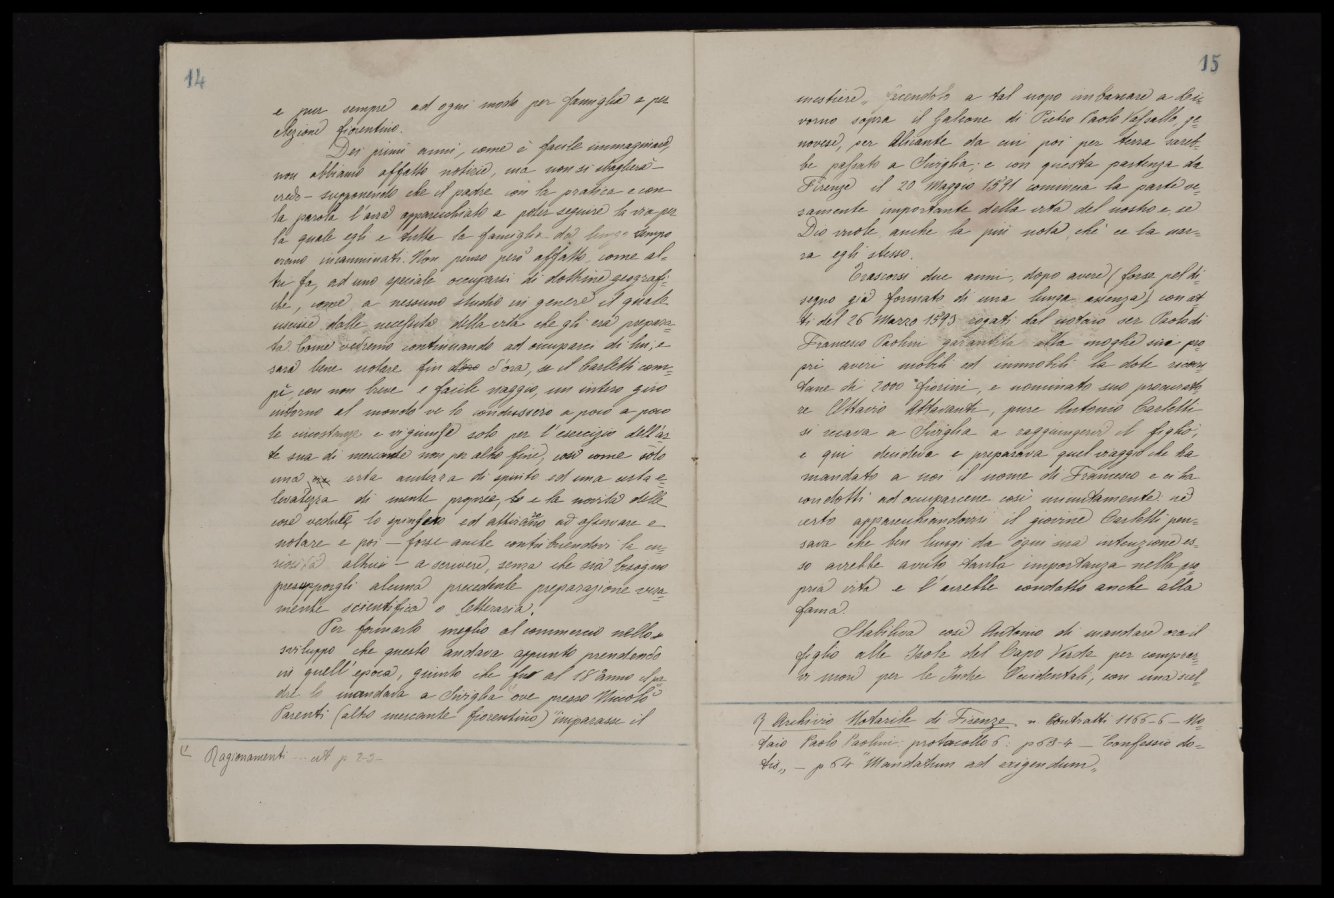 14
e pur sempre ad ogni modo per famiglia e per
elezione fiorentino.
Dei primi anni, come è facile immaginare,
non abbiamo affatto notizie, ma non si sbaglierà -
credo - supponendo che il padre con la pratica e con
la parola l'avrà apparecchiato a poter seguire la via per
la quale egli e tutta la famiglia da lungo tempo
erano incamminati. Non penso però affatto, come al=
tri fa, ad uno speciale occuparsi di dottrine geografi=
che, come a nessuno studio in genere il quale
uscisse dalle necessità della vita che gli era prepara=
ta. Come vedremo continuando ad occuparci di lui, e
sarà bene notare fin d'ora, se il Carletti com=
piè, con non breve e facile viaggio, un intero giro
intorno al mondo ve lo condussero a poco a poco
le circostanze e vi giunse solo per l'esercizio dell'ar
te sua di mercante non per altro fine, così come solo
una certa acutezza di spirito ed una certa e=
levatezza di mente propria, e la novità delle
cose vedute lo spinsero ad osservare e
notare e poi - forse anche contribuendovi la cu=
riosità altrui - a scrivere, senza che sia bisogno
presupporgli alcuna precedente preparazione vera=
mente scientifica o letteraria.
Per formarlo meglio al commercio nello
sviluppo che questo andava appunto prendendo
in quell'epoca, giunto che fu al 18° anno il pa
dre lo mandava a Siviglia ove presso Niccolò
Parenti (altro mercante fiorentino) "imparasse il
1) Ragionamenti - cit p 2-3-
15
mestiere" facendolo a tal uopo imbarcare a Li=
vorno sopra il Galeone di Pietro Paolo Vassallo ge=
novese, per Alicante da cui poi per terra sareb=
be passato a Siviglia; e con questa partenza da
Firenze il 20 Maggio 1591 comincia la parte ve=
ramente importante della vita del nostro e, se
Dio vuole, anche la più nota, chè ce la nar=
ra egli stesso.
Trascorsi due anni, dopo avere (forse pel di=
segno già formato di una lunga assenza) con at=
ti del 26 Marzo 1593 rogati dal notaio ser Paolo di
Francesco Paolini garantita alla moglie sui pro=
pri averi mobili ed immobili la dote
di 2000 fiorini, e nominato suo procurato
re Ottavio Attavanti, pure Antonio Carletti
si recava a Siviglia a raggiungervi il figlio,
e qui decideva e preparava quel viaggio che ha
mandato a noi il nome di Francesco e ci ha
condotti ad occuparcene così minutamente. nè
certo apparecchiandovisi il giovine Carletti pen=
sava che ben lungi da ogni sua intenzione es=
so avrebbe avuto tanta importanza nella pro
pria vita e l'avrebbe condotto anche alla
fama.
Stabiliva così Antonio di mandare ora il
figlio alle Isole del Capo Verde per comprar=
vi mori per le Indie Occidentali, con una nel
1) Archivio Notarile di Firenze - Contratti 1166-6 - No
taio Paolo Paolini - protocollo 6: p 63-4 - Confessio do=
tis" - p 64 "Mandatum ad exigendum"